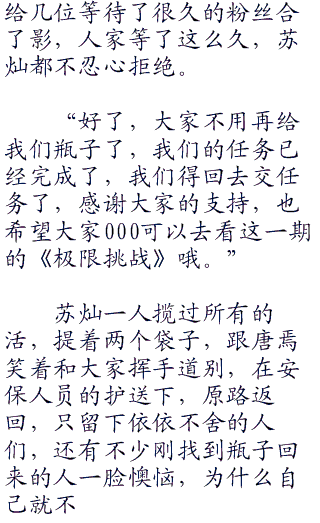 给几位等待了很久的粉丝合
了影，人家等了这么久，苏
灿都不忍心拒绝。
“好了，大家不用再给
我们瓶子了，我们的任务已
经完成了，我们得回去交任
务了，感谢大家的支持，也
希望大家000可以去看这一期
的《极限挑战》哦。”
苏灿一人揽过所有的
活，提着两个袋子，跟唐焉
笑着和大家挥手道别，在安
保人员的护送下，原路返
回，只留下依依不舍的人
们，还有不少刚找到瓶子回
来的人一脸懊恼，为什么自
己就不